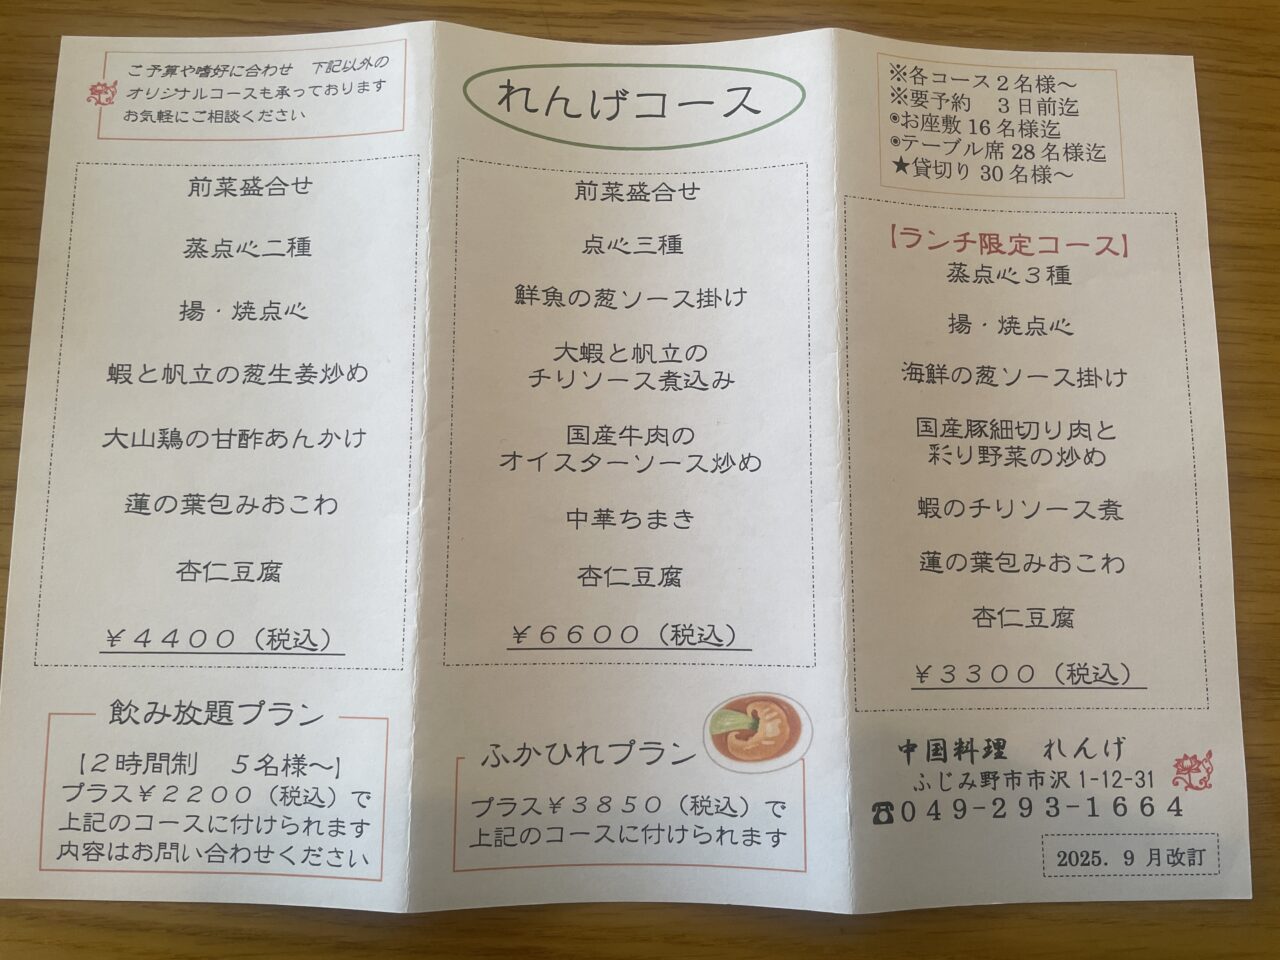 ご予算や嗜好に合わせ　下記以外の
オリジナルコースも承っております
お気軽にご相談ください
前菜盛合せ
蒸点心二種
揚・焼点心
蝦と帆立の葱生姜炒め
大山鶏の甘酢あんかけ
蓮の葉包みおこわ
杏仁豆腐
￥４４００（税込）
飲み放題プラン
【２時間制　５名様～】
プラス￥２２００（税込）で
上記のコースに付けられます
内容はお問い合わせください
れんげコース
前菜盛合せ
点心三種
鮮魚の葱ソース掛け
大蝦と帆立の
チリソース煮込み
国産牛肉の
オイスターソース炒め
中華ちまき
杏仁豆腐
￥６６００（税込）
ふかひれプラン
プラス￥３８５０（税込）で
上記のコースに付けられます
※各コース２名様～
※要予約　３日前迄
◉お座敷 16 名様迄
◉テーブル席 28 名様迄
★貸切り 30 名様～
【ランチ限定コース】
蒸点心３種
揚・焼点心
海鮮の葱ソース掛け
国産豚細切り肉と
彩り野菜の炒め
蝦のチリソース煮
蓮の葉包みおこわ
杏仁豆腐
￥３３００（税込）
中国料理　れんげ
ふじみ野市市沢 1-12-31
☎049-293-1664
2025．9 月改訂